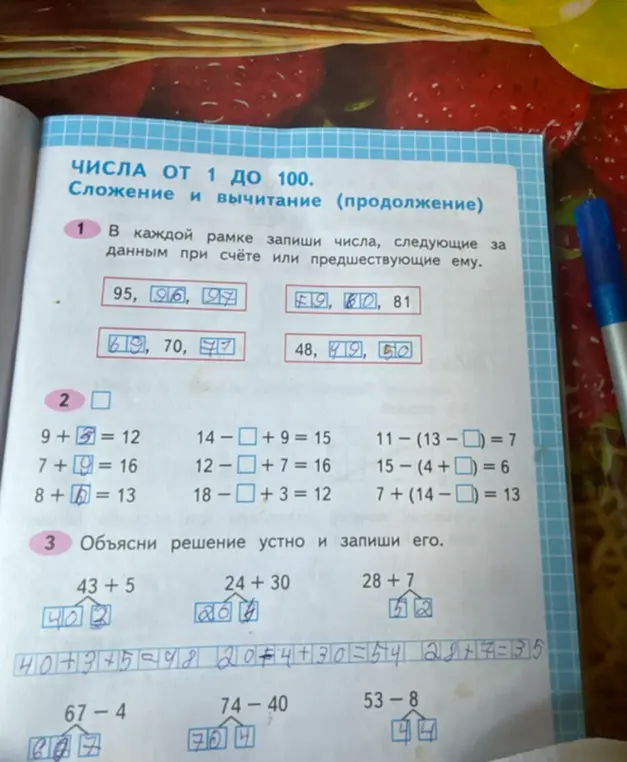 ЧИСЛА ОТ 1 ДО 100.
Сложение и вычитание (продолжение)
1 В каждой рамке запиши числа, следующие за
данным при счёте или предшествующие ему.
95, 96, 97 79, 80, 81
69, 70, 71 48, 49, 50
2
9 + 3 = 12 14 – □ + 9 = 15 11 – (13 – □) = 7
7 + 9 = 16 12 – □ + 7 = 16 15 – (4 + □) = 6
8 + = 13 18 – □ + 3 = 12 7 + (14 – □) = 13
3 Объясни решение устно и запиши его.
43 + 5 24 + 30 28 + 7
40 3 20 4 5 2
40+3+5=48 20+4+30=54 28+7=35
67 – 4 74 – 40 53 – 8
60 7 70 4 44